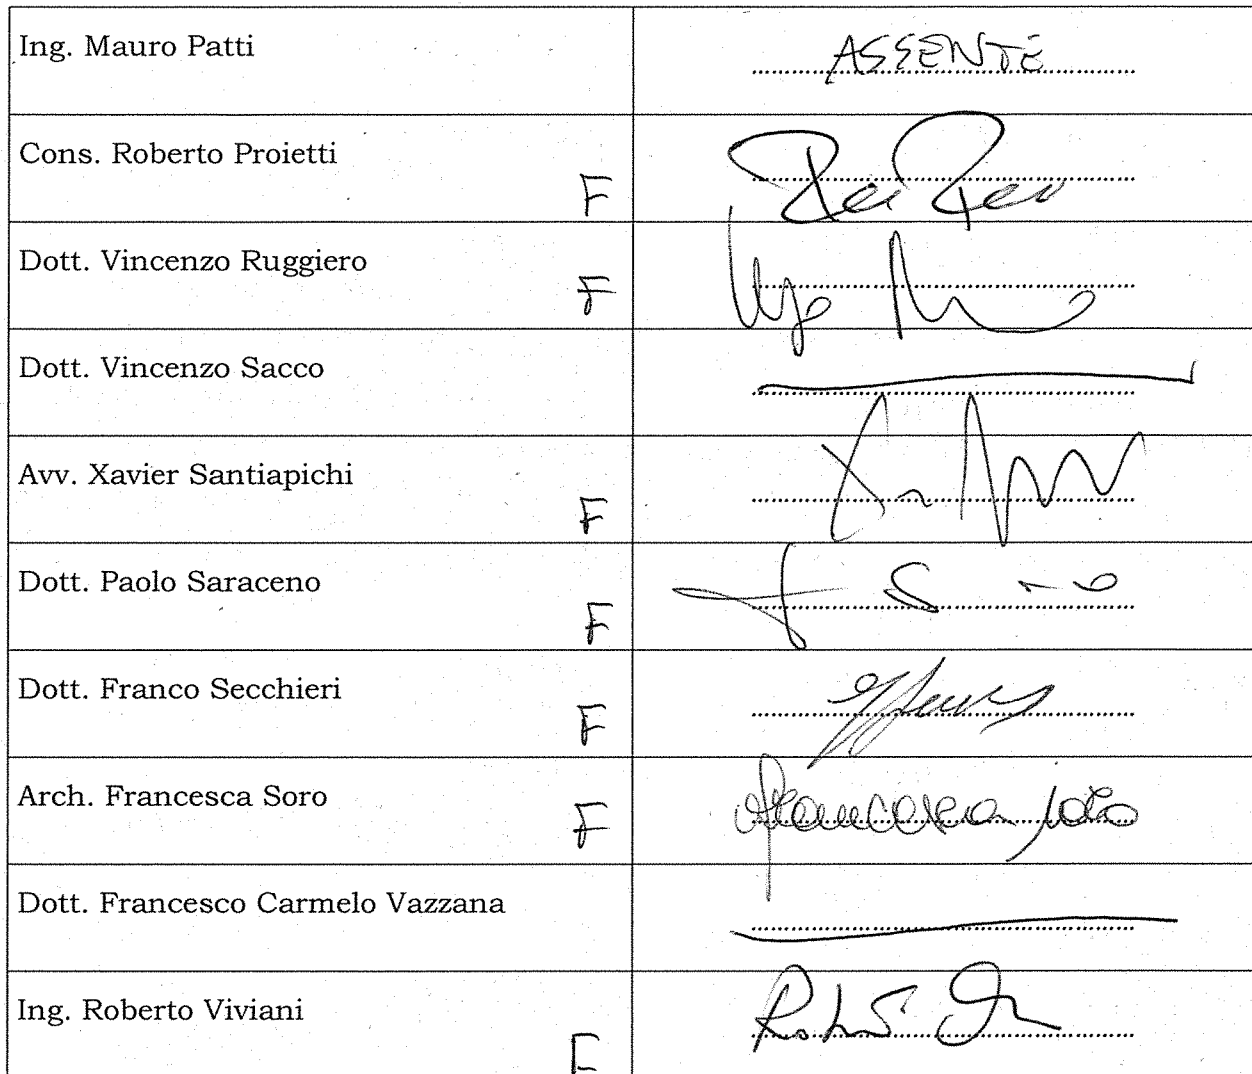 Ing. Mauro Patti ASSENTE
Cons. Roberto Proietti
F
Dott. Vincenzo Ruggiero
F
Dott. Vincenzo Sacco
Avv. Xavier Santiapichi
F
Dott. Paolo Saraceno
F
Dott. Franco Secchieri
F
Arch. Francesca Soro
F Francesca Soro
Dott. Francesco Carmelo Vazzana
Ing. Roberto Viviani
F